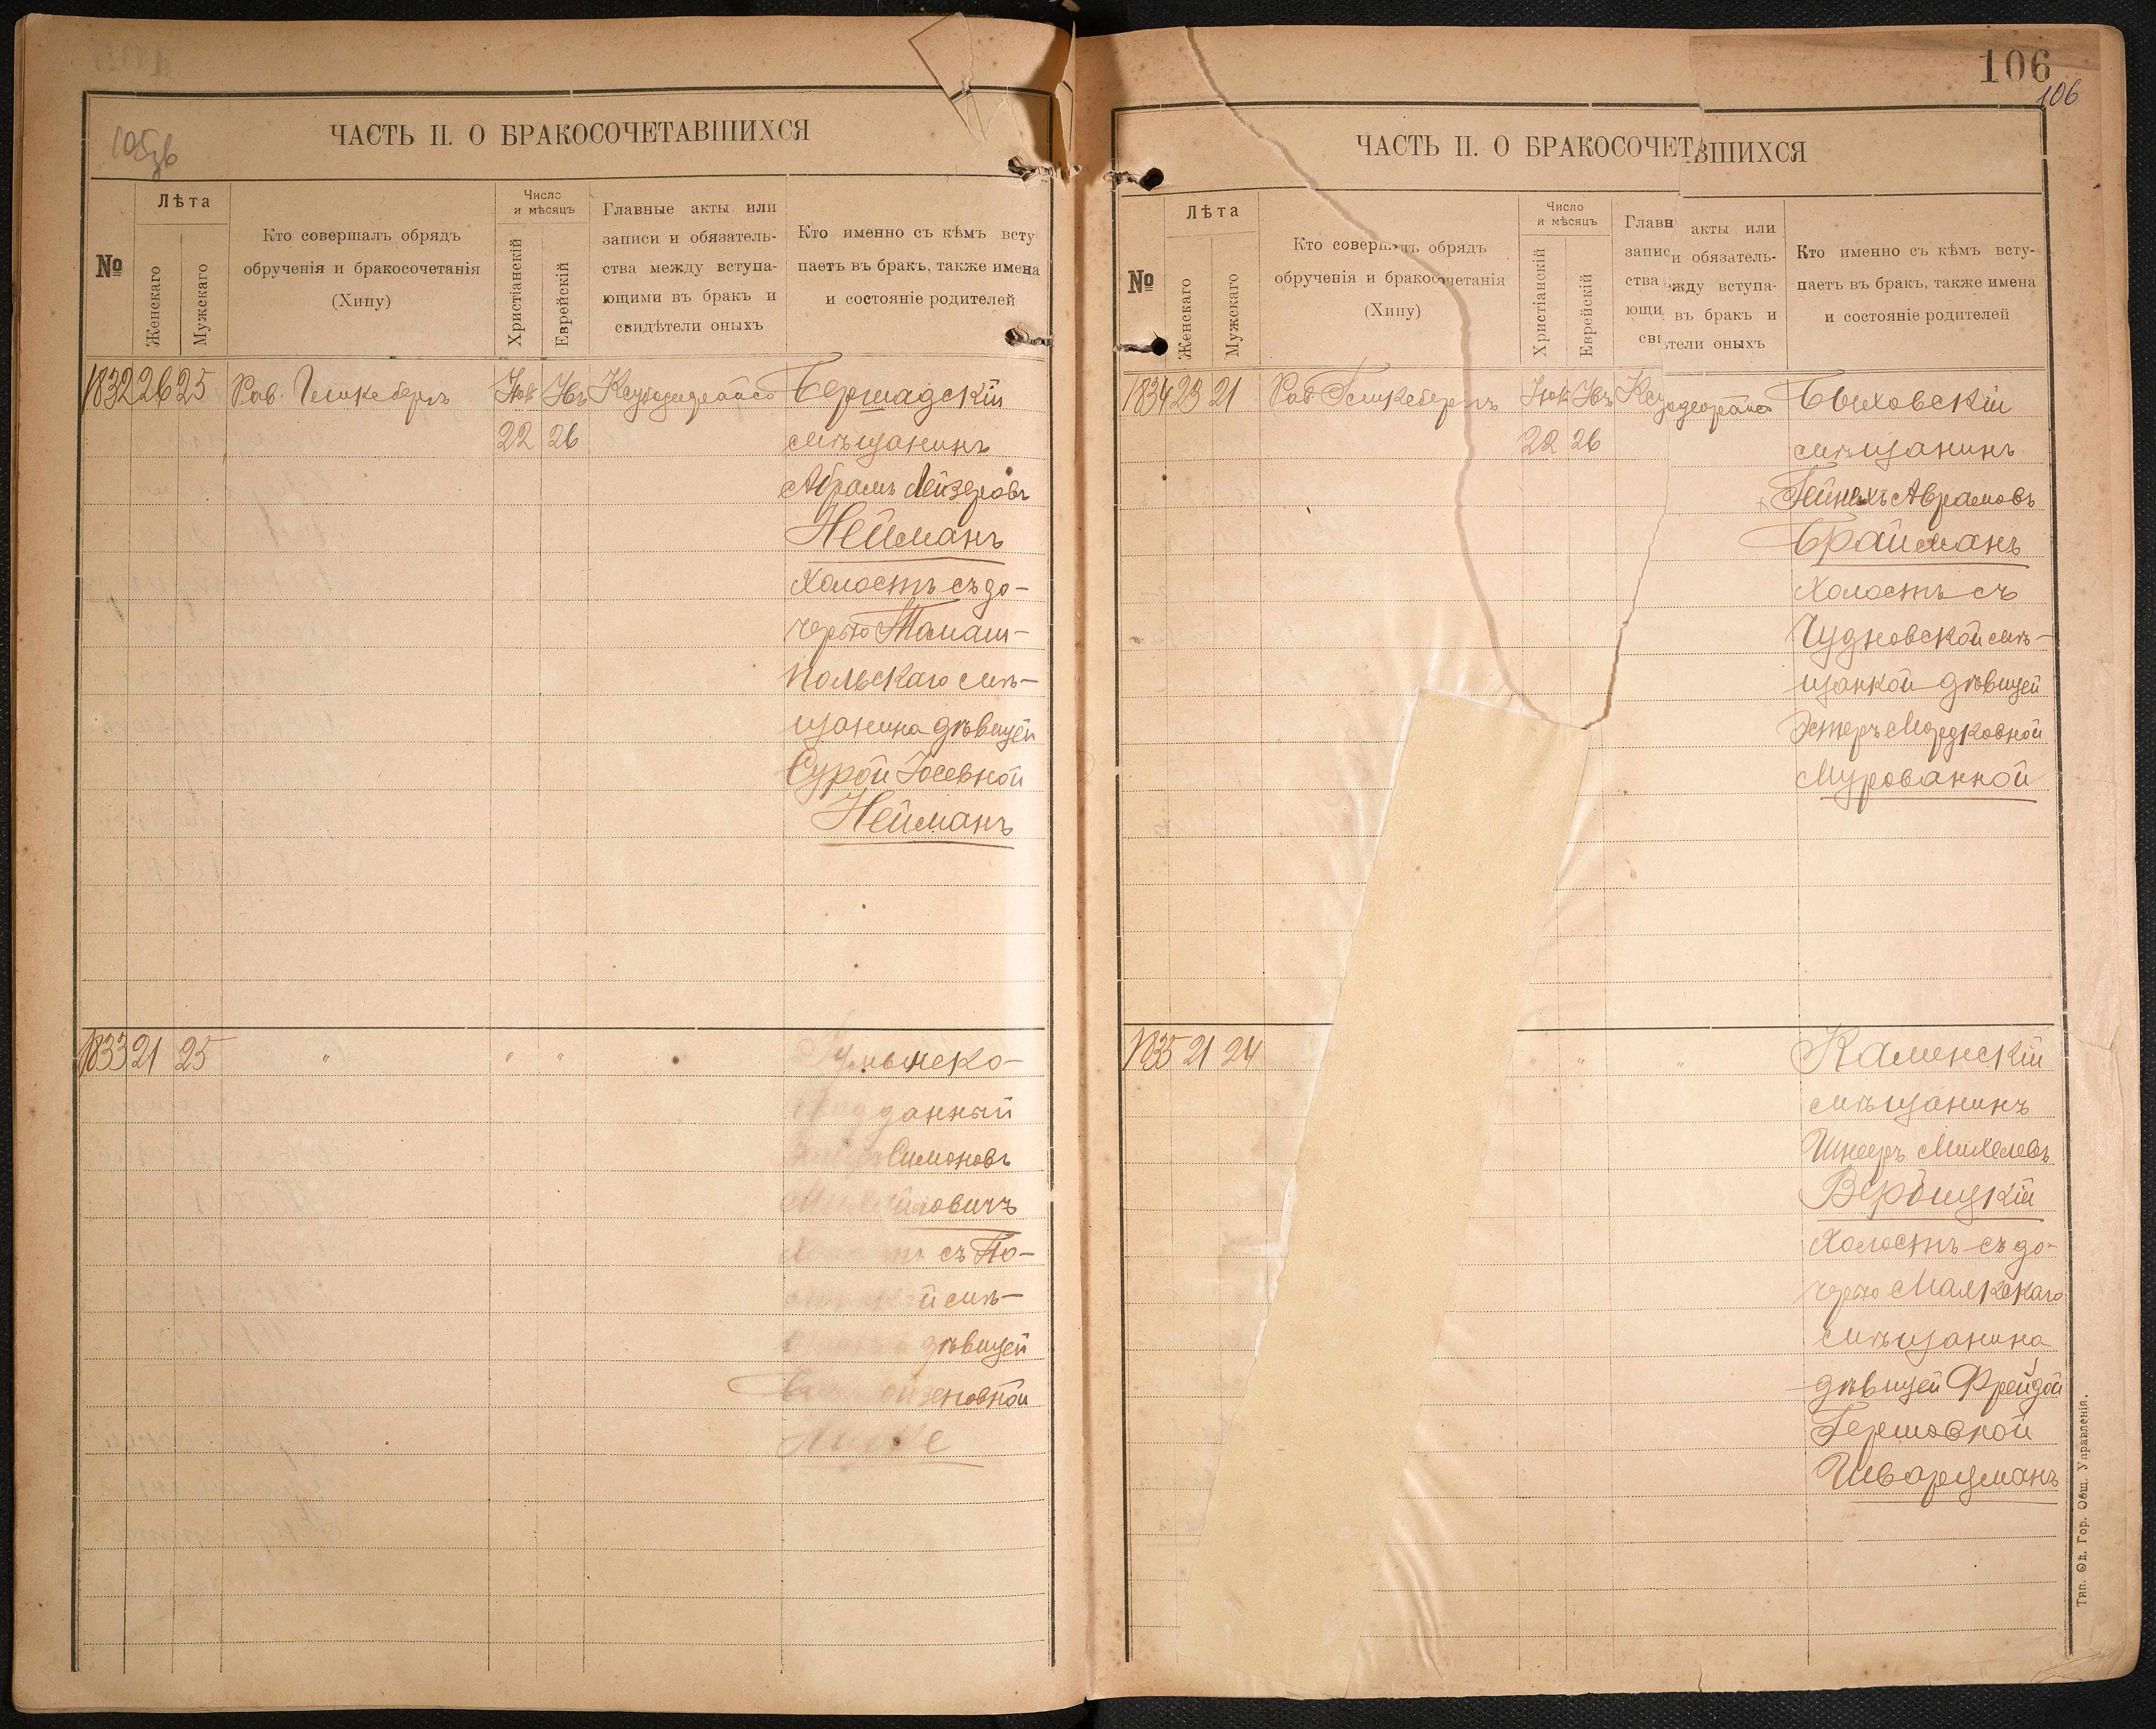 105зв
ЧАСТЬ II. О БРАКОСОЧЕТАВШИХСЯ
№
Лѣта
Женскаго
Мужскаго
Кто совершалъ обрядъ
обрученія и бракосочетанія
(Хипу)
Число
и мѣсяцъ
Христіанскій
Еврейскій
Главные акты или
записи и обязатель-
ства между вступа-
ющими въ бракъ и
свидѣтели оныхъ
Кто именно съ кѣмъ всту
паетъ въ бракъ, также имена
и состояніе родителей
1832 26 25 Рав. Бершадскій
22 26 мѣщанинъ
Абрамъ Лейзеровъ
Нейманъ
холостъ съ до-
черью Томаш-
польскаго мѣ-
щанина дѣвицей
Сурой Іосевной
Нейманъ
1833 21 25 " " "
данный
Симоновъ
овичъ
съ По-
й мѣ-
дѣвицей
106
106
ЧАСТЬ II. О БРАКОСОЧЕТАВШИХСЯ
№
Лѣта
Женскаго
Мужскаго
Кто совершалъ обрядъ
обрученія и бракосочетанія
(Хипу)
Число
и мѣсяцъ
Христіанскій
Еврейскій
Главн акты или
записи обязатель-
ства ежду вступа-
ющи въ бракъ и
сви тели оныхъ
Кто именно съ кѣмъ всту-
паетъ въ бракъ, также имена
и состояніе родителей
1834 23 21 Рав Быховскій
22 26 мѣщанинъ
Гейнихъ Аврамовъ
Брайманъ
холостъ съ
Чудновской мѣ-
щанкой дѣвицей
Эстеръ Мордковной
Мурованной
1835 21 24 " " " Каменскій
мѣщанинъ
Шнееръ Михелевъ
Вербицкій
холостъ съ до-
черью
мѣщанина
дѣвицей Фрейдой
Гершовной
Шварцманъ
Тип. Од. Гор. Общ. Управленія.